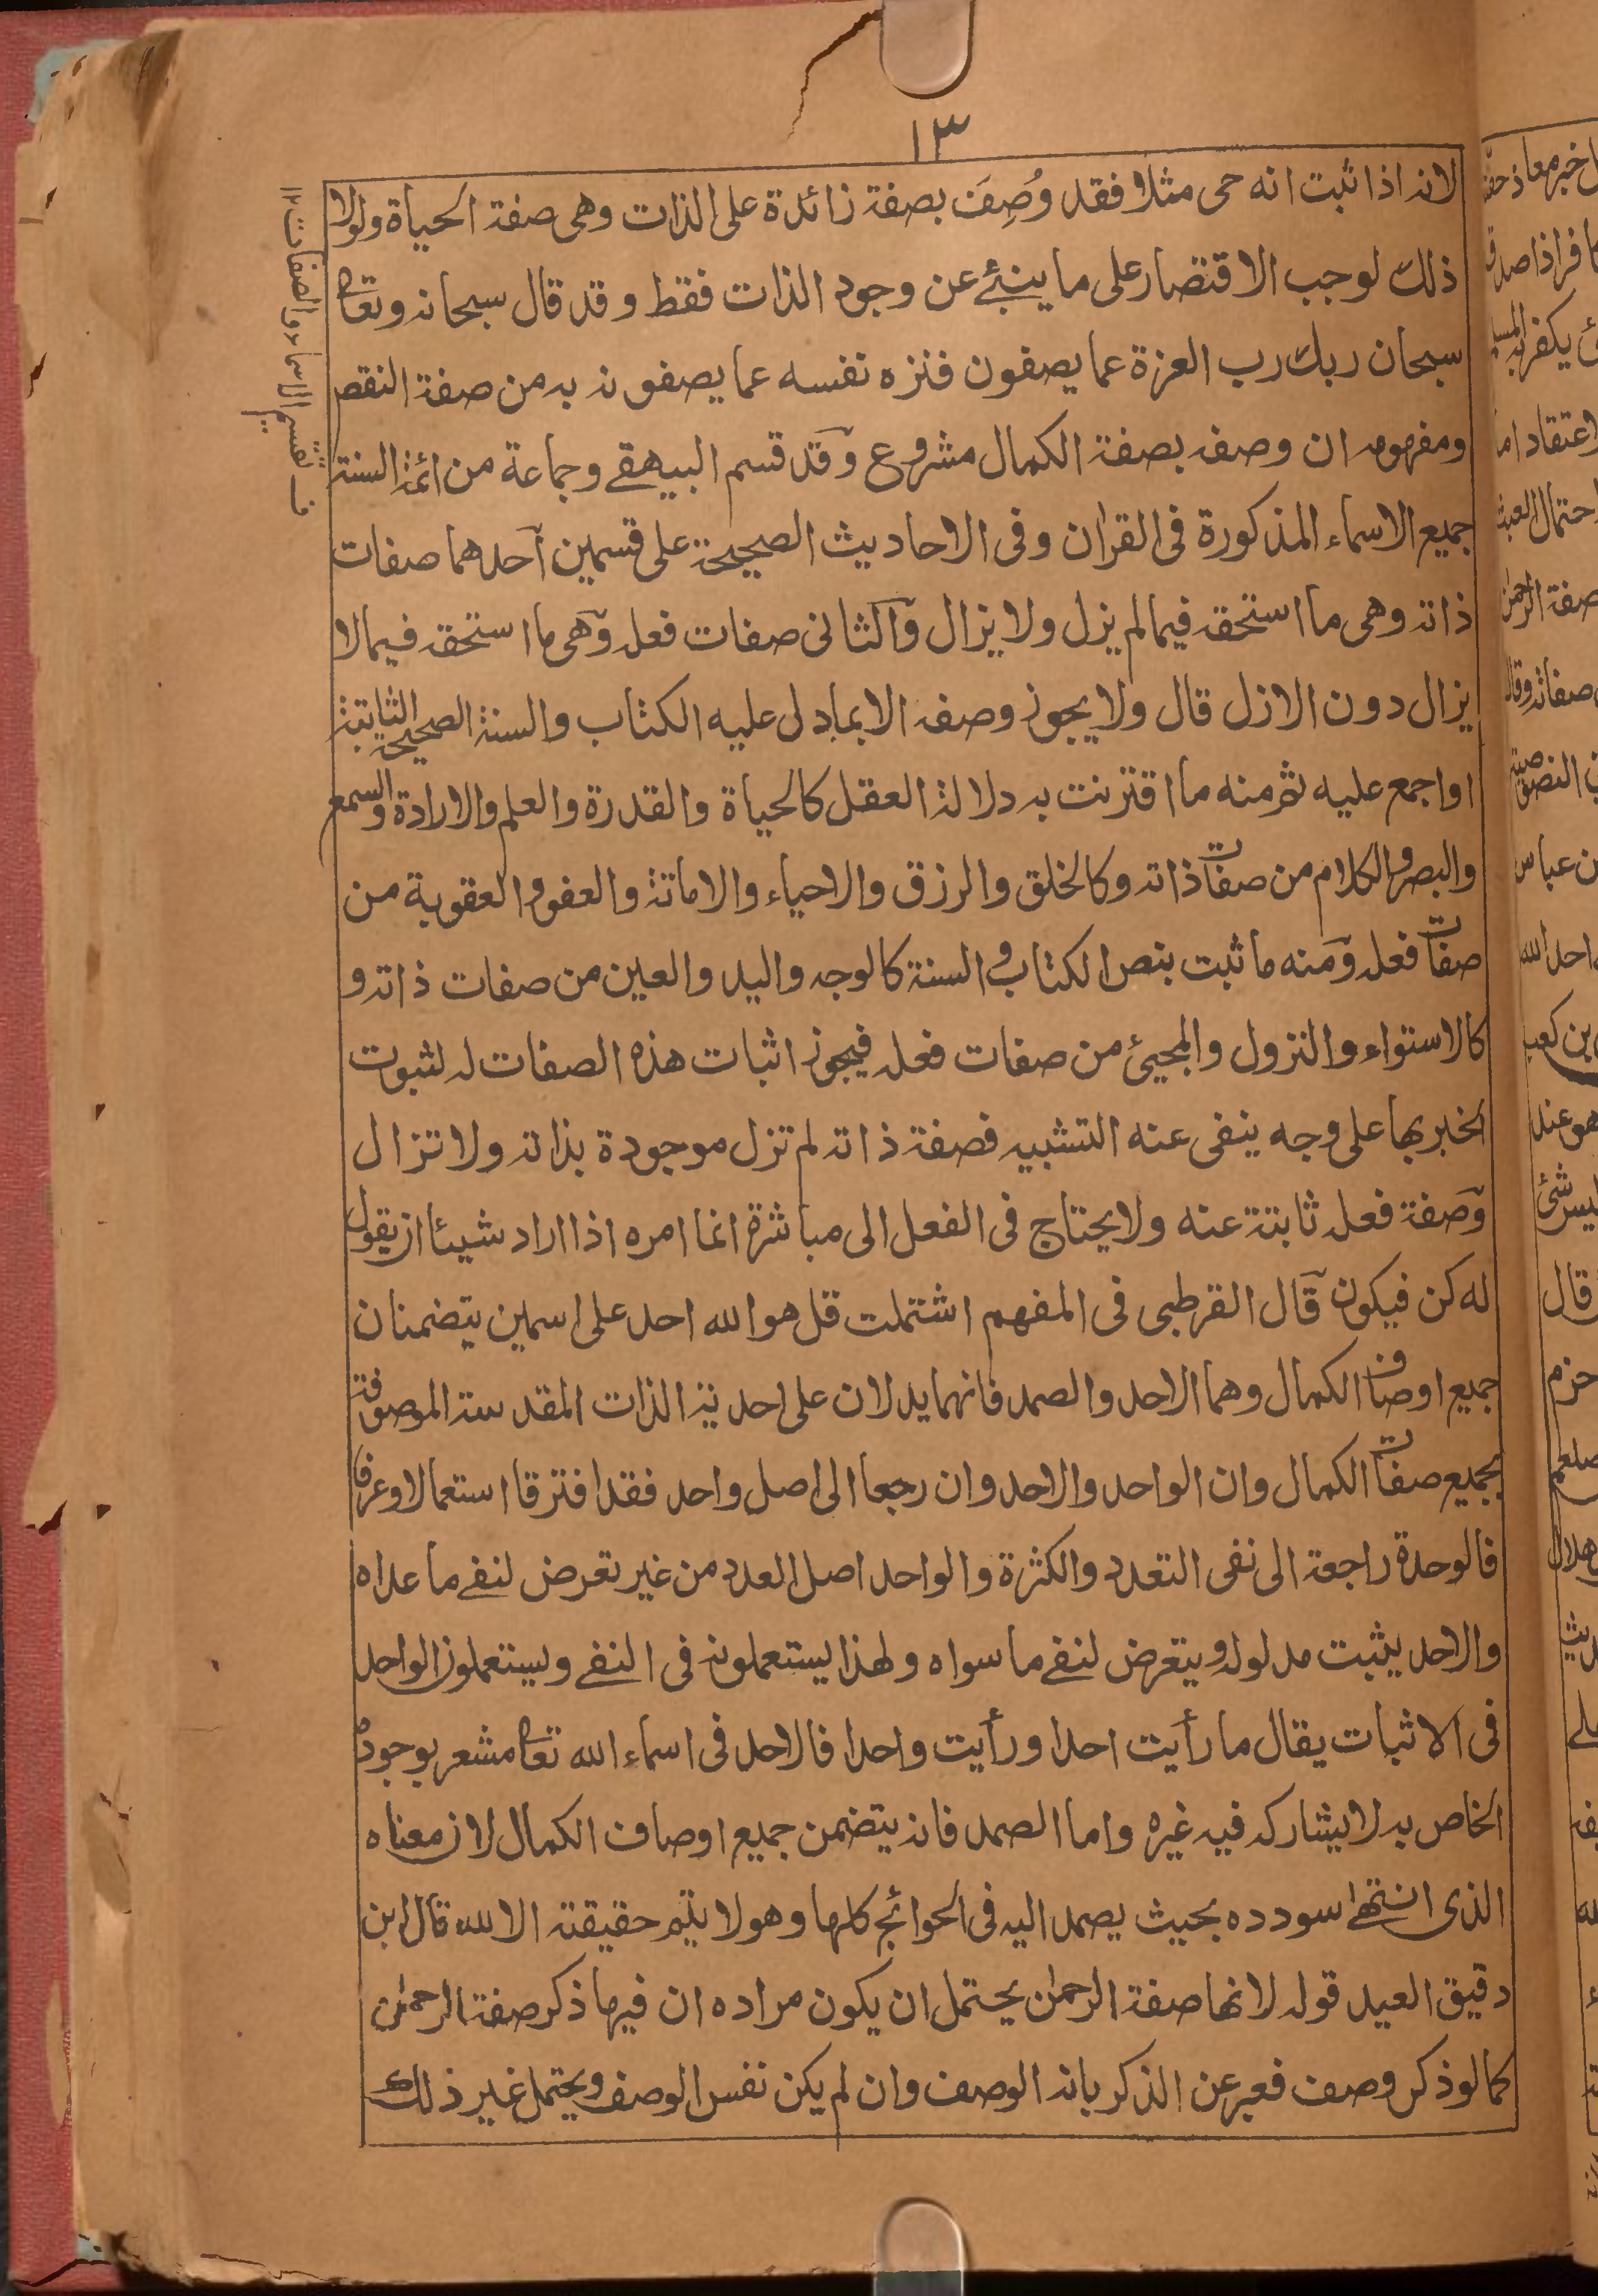 ١٣
لانه اذا ثبت انه حى مثلا فقد وُصِفَ بصفة زائدة على الذات وهى صفة الحياة ولولا
ذلك لوجب الاقتصار على ما ينبئ عن وجود الذات فقط وقد قال سبحانه وتعالى
سبحان ربك رب العزة عما يصفون فنزه نفسه عما يصفونه به من صفة النقص
ومفهومه ان وصفه بصفة الكمال مشروع وقد قسم البيهقے وجماعة من ائمة السنة
جميع الاسماء المذكورة فى القران وفى الاحاديث الصحيحة على قسمين احدهما صفات
ذاته وهى ما استحقه فيما لم يزل ولا يزال والثانى صفات فعله وهى ما استحقه فيما لا
يزال دون الازل قال ولا يجوز وصفه الا بما دل عليه الكتاب والسنة الصحيحة الثابتة
او اجمع عليه ثم منه ما اقترنت به دلالة العقل كالحياة والقدرة والعلم والارادة والسمع
والبصر والكلام من صفات ذاته وكالخلق والرزق والاحياء والاماتة والعفو والعقوبة من
صفات فعله ومنه ما ثبت بنص الكتاب والسنة كالوجه واليد والعين من صفات ذاته و
كالاستواء والنزول والمجيئ من صفات فعله فيجوز اثبات هذه الصفات له لثبوت
الخبر بها على وجه ينفى عنه التشبيه فصفة ذاته لم تزل موجودة بذاته ولا تزال
وصفة فعله ثابتة عنه ولا يحتاج فى الفعل الى مباشرة انما امره اذا اراد شيئا ان يقول
له كن فيكون قال القرطبى فى المفهم اشتملت قل هو الله احد على اسمين يتضمنان
جميع اوصاف الكمال وهما الاحد والصمد فانهما يدلان على احدية الذات المقدسة الموصوفة
بجميع صفات الكمال وان الواحد والاحد وان رجعا الى اصل واحد فقد افترقا استعمالا وعرفا
فالوحدة راجعة الى نفى التعدد والكثرة والواحد اصل العدد من غير تعرض لنفے ما عداه
والاحد يثبت مدلوله ويتعرض لنفے ما سواه ولهذا يستعملونه فى النفے ويستعملون الواحد
فى الاثبات يقال ما رأيت احدا ورأيت واحدا فالاحد فى اسماء الله تعالى مشعر بوجوده
الخاص به لا يشاركه فيه غيره واما الصمد فانه يتضمن جميع اوصاف الكمال لان معناه
الذى انتهى سودده بحيث يصمد اليه فى الحوائج كلها وهو لا يتم حقيقته الا لله قال ابن
دقيق العيد قوله لانها صفة الرحمن يحتمل ان يكون مراده ان فيها ذكر صفة الرحمن
كما لو ذكر وصف فعبر عن الذكر بانه الوصف وان لم يكن نفس الوصف ويحتمل غير ذلك
ف تقسيم الاسماء والصفات ١٢
خبر معاذ
اعتقاد
احتمال
صفة الرحمن
صفاته وقال
ن عباس
احد الله
بن كعب
هو عند
ليس شئ
قال
حزم
صلعم
هلال